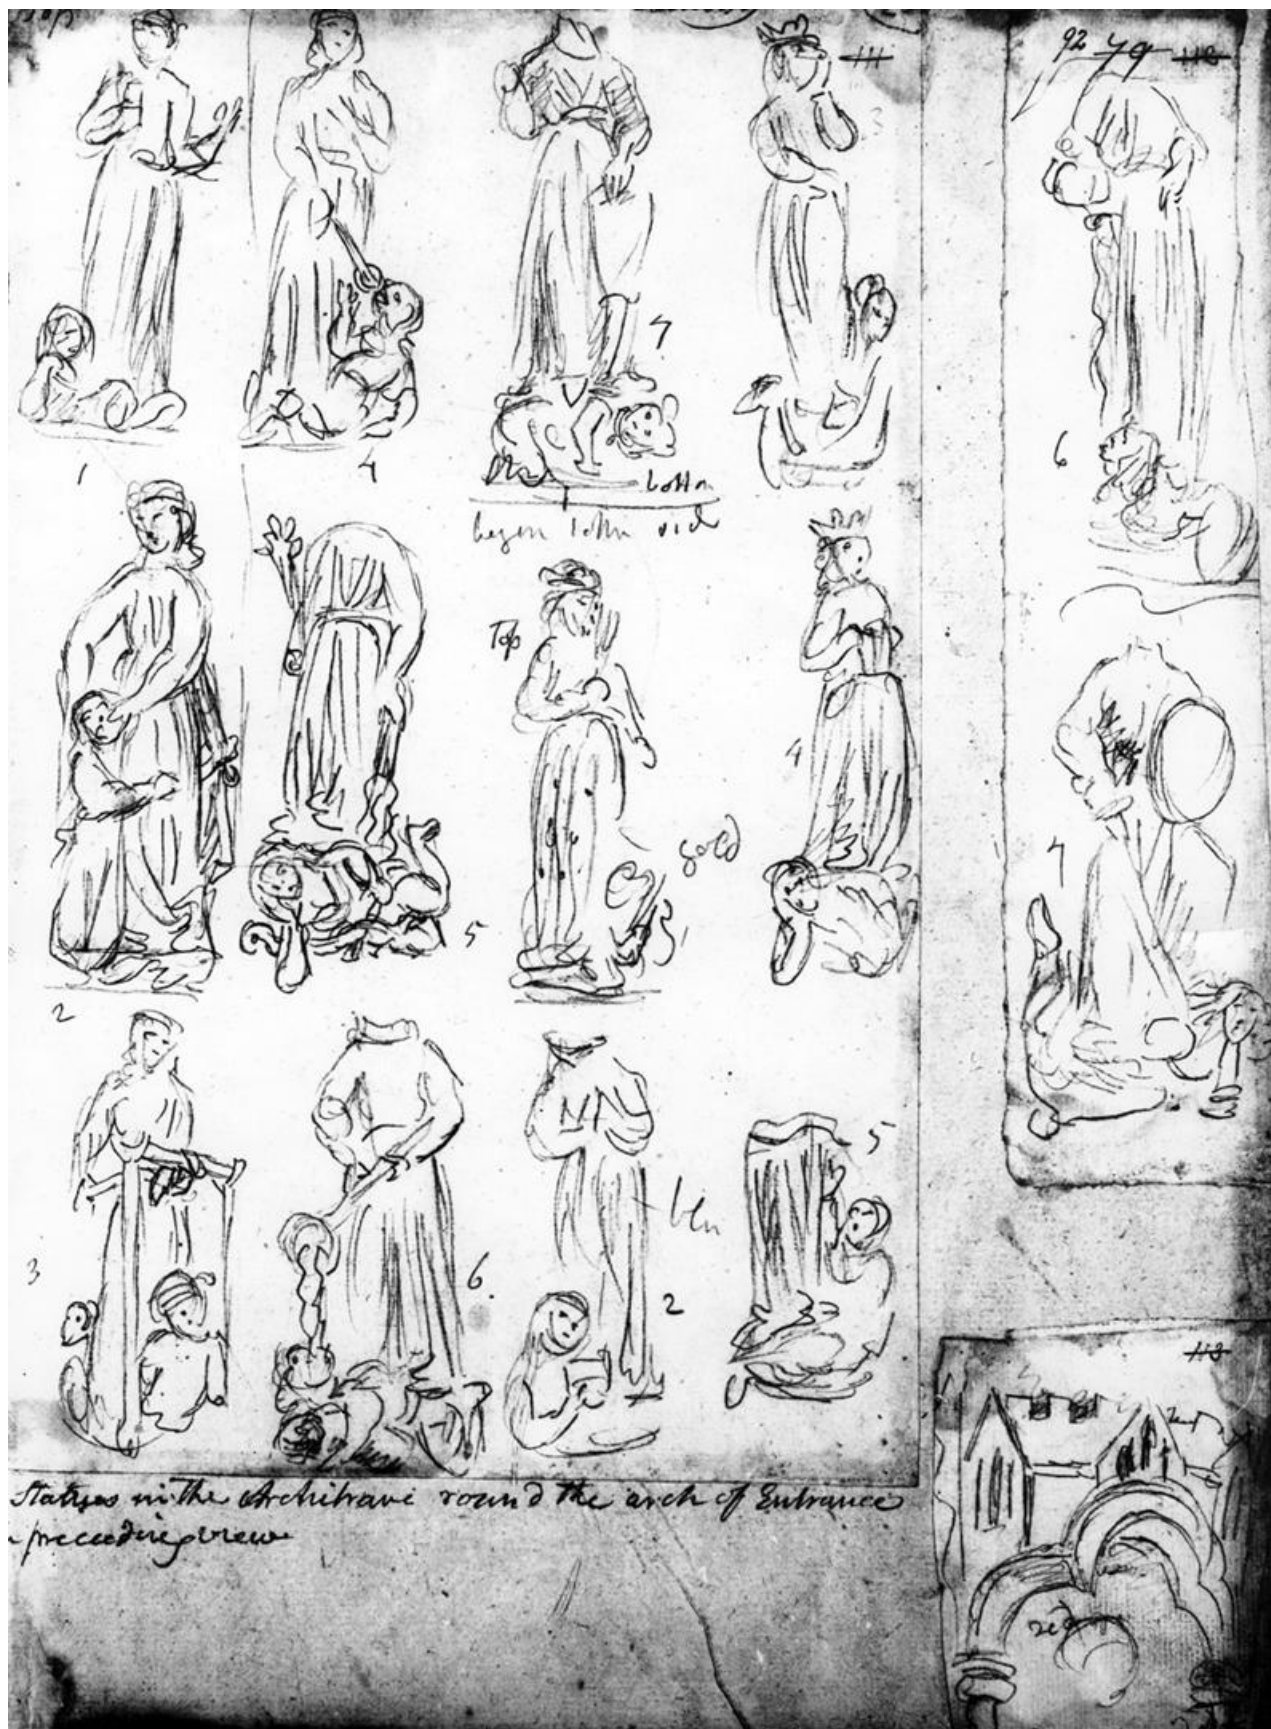 Top
111
92 79 118
1
4
7
3
6
bottom
begin bottom side
Top
4
gold
5
2
7
3
6
blu
2
5
113
Statues in the Architrave round the arch of Entrance
preceding view
red